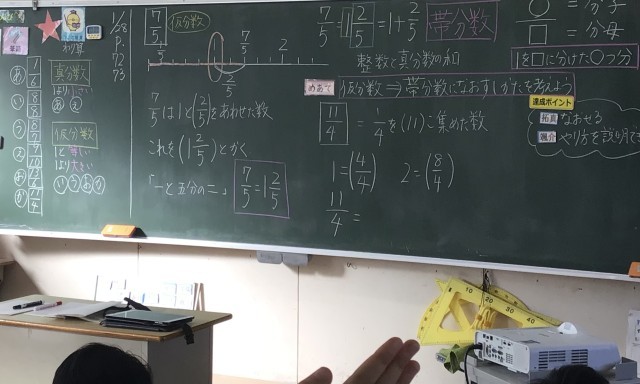 1/28
P.
72
73
わり算
真分数
1より小さい
あ え
仮分数
1と等しい
1より大きい
い う お か
あ
い
う
え
お
か
11/4
7/5
仮分数
1
7/5
2
2/5
7/5は1と(2/5)をあわせた数
これを(1 2/5)とかく
「一と五分の二」
7/5=1 2/5
7/5=1 2/5=1+2/5
帯分数
整数と真分数の和
めあて
仮分数⇒帯分数になおすしかたを考えよう
11/4=1/4を(11)こ集めた数
1=(4/4) 2=(8/4)
11/4=
○=分子
□=分母
1を□に分けた○つ分
達成ポイント
なおせる
やり方を説明でき
10
20
30
40